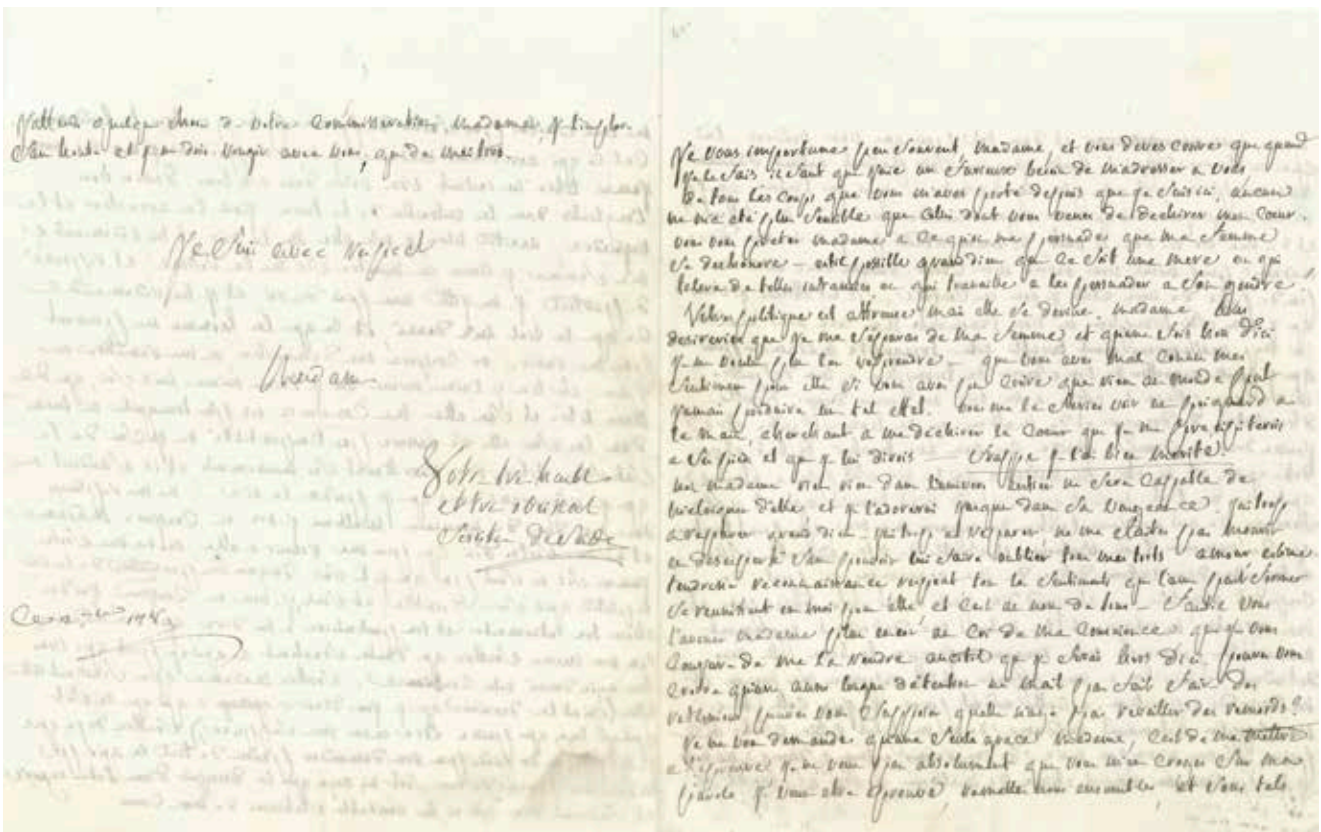 J'attens quelque chose de votre commisération, madame, j l'implore
sans honte et peu dois rougir avec vous, que de mes torts.
Je suis avec respect
Madame
Votre tres humble
et tres obeissant
serviteur de Sade
Ce
Je vous importune peu souvent, madame, et vous devez croire que quand
je le fais il faut que j'aie un furieux besoin de m'adresser a vous
De tous les coups que vous m'aves porté depuis que je suis ici, aucun
ne m'a été plus sensible que celui dont vous venez de dechirer mon coeur.
vous vous portez madame a ce qu'on me persuade que ma femme
se deshonore — est il possible grand dieu que ce soit une mere ou qui
tolere de telles infamies ou qui travaille a les persuader a son gendre!
Votre politique est affreuse mais elle se devine, madame vous
desireriez que je me separas de ma femme et qu'une fois hors d'ici
je ne voulu plus la reprendre — que vous aves mal connu mes
sentimens pour elle si vous aves pu croire que rien au monde peut
jamais produire un tel effet. vous me la feriez voir un poignard a
la main, cherchant a me dechirer le coeur que je me precipiterois
a ses pieds et que je lui dirois — frappe j l'ai bien merité.
non madame rien rien dans l'univers entier ne sera cappable de
m'eloigner d'elle et j l'adorerai jusque dans sa vengeance.
a reparer grand dieu
au desespoir sans pouvoir lui faire oublier tous mes torts amour estime
tendresse reconnaissance respect tous les sentimens que l'ame peut former
se reunissent en moi pour elle et c'est au nom de tous
de ma conscience que je vous
conjure de me la rendre aussitot que je serai hors d'ici. pouvez vous
croire qu'une aussi longue détention ne m'ait pas fait faire des
reflexions pouvez vous supposer qu'elle n'aye pas reveillé des remords?
Je ne vous demande qu'une seule grace madame, c'est de me mettre
a l'epreuve je ne veux pas absolument que vous m'en croyez sur ma
parole je veux etre eprouvé, remettez nous ensemble, et sous tels